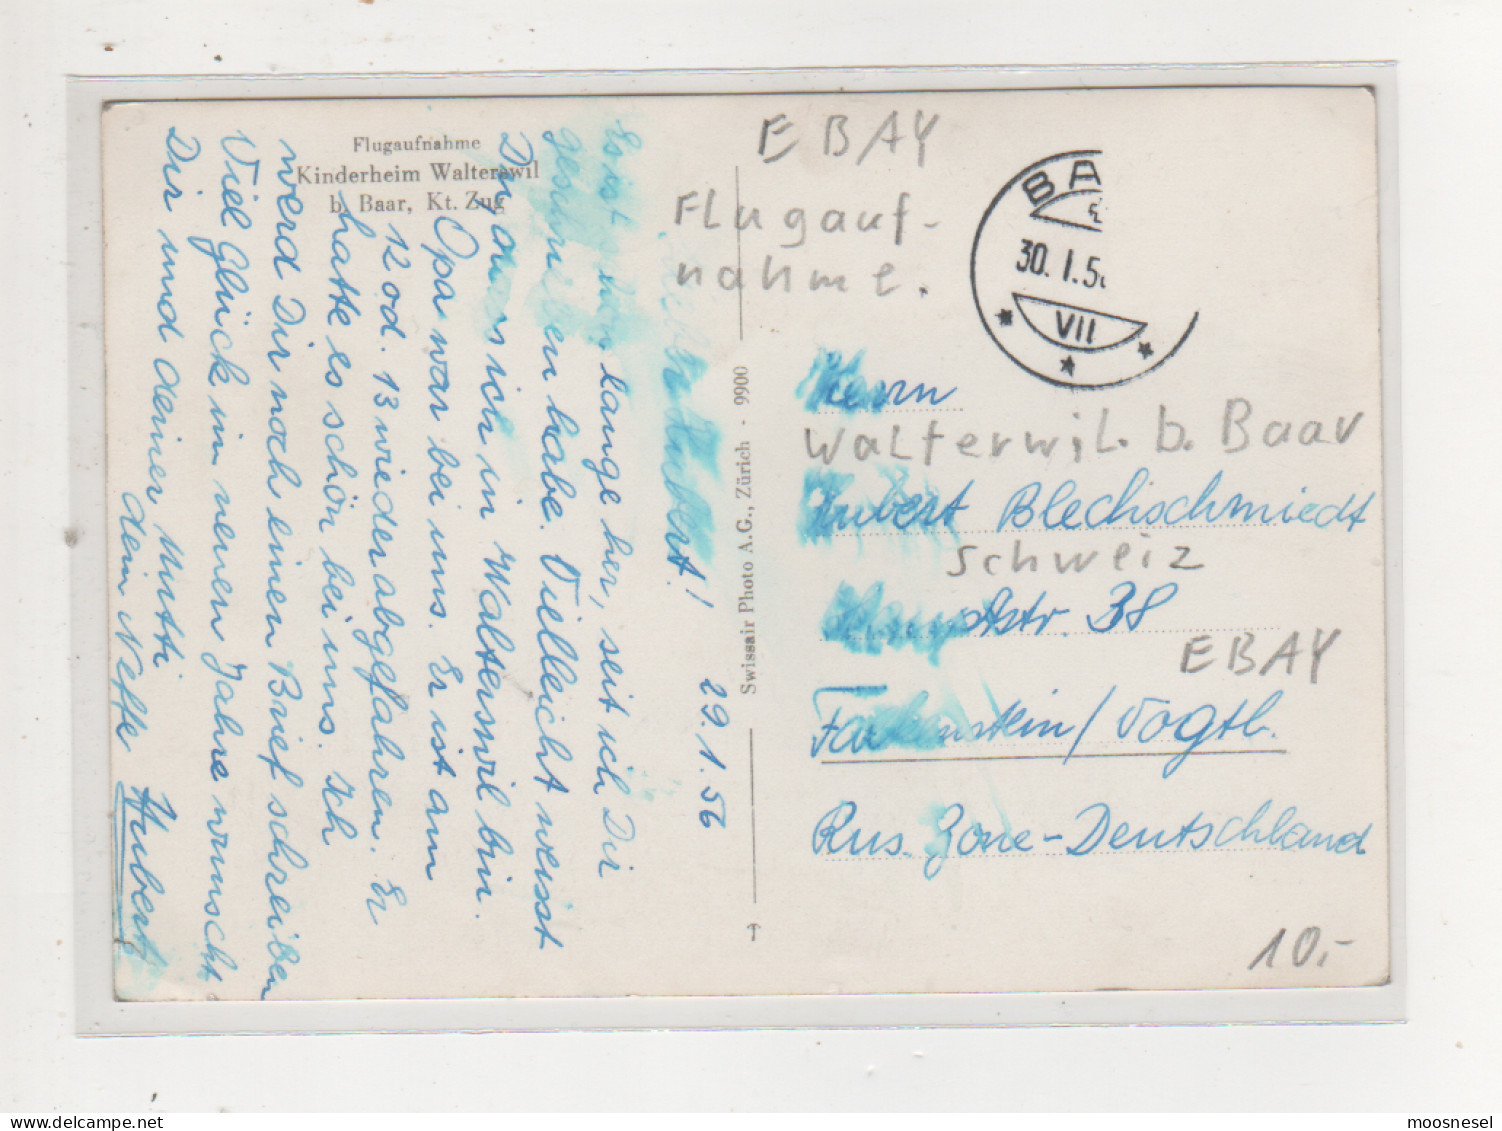 Flugaufnahme
Kinderheim Walterswil
b. Baar, Kt. Zug
29.1.56
Hubert!
Es ist lange her, seit ich Dir
geschrieben habe. Vielleicht weisst
Du, dass ich in Walterswil bin.
Opa war bei uns. Er ist am
12 od. 13 wieder abgefahren. Er
hatte es schön bei uns. Ich
werd Dir noch einen Brief schreiben
Viel Glück im neuen Jahre wünscht
Dir und deiner Mutti
dein Neffe Hubert
Swissair Photo A.G., Zürich · 9900
EBAY
Flugauf-
nahme.
BA
30.I.5
VII
Herrn
Walterwil. b. Baar
Hubert Blechschmiedt
Schweiz
Hauptstr. 38
EBAY
Falkenstein/Vogtl.
Rus. Zone-Deutschland
10.-
moosnesel